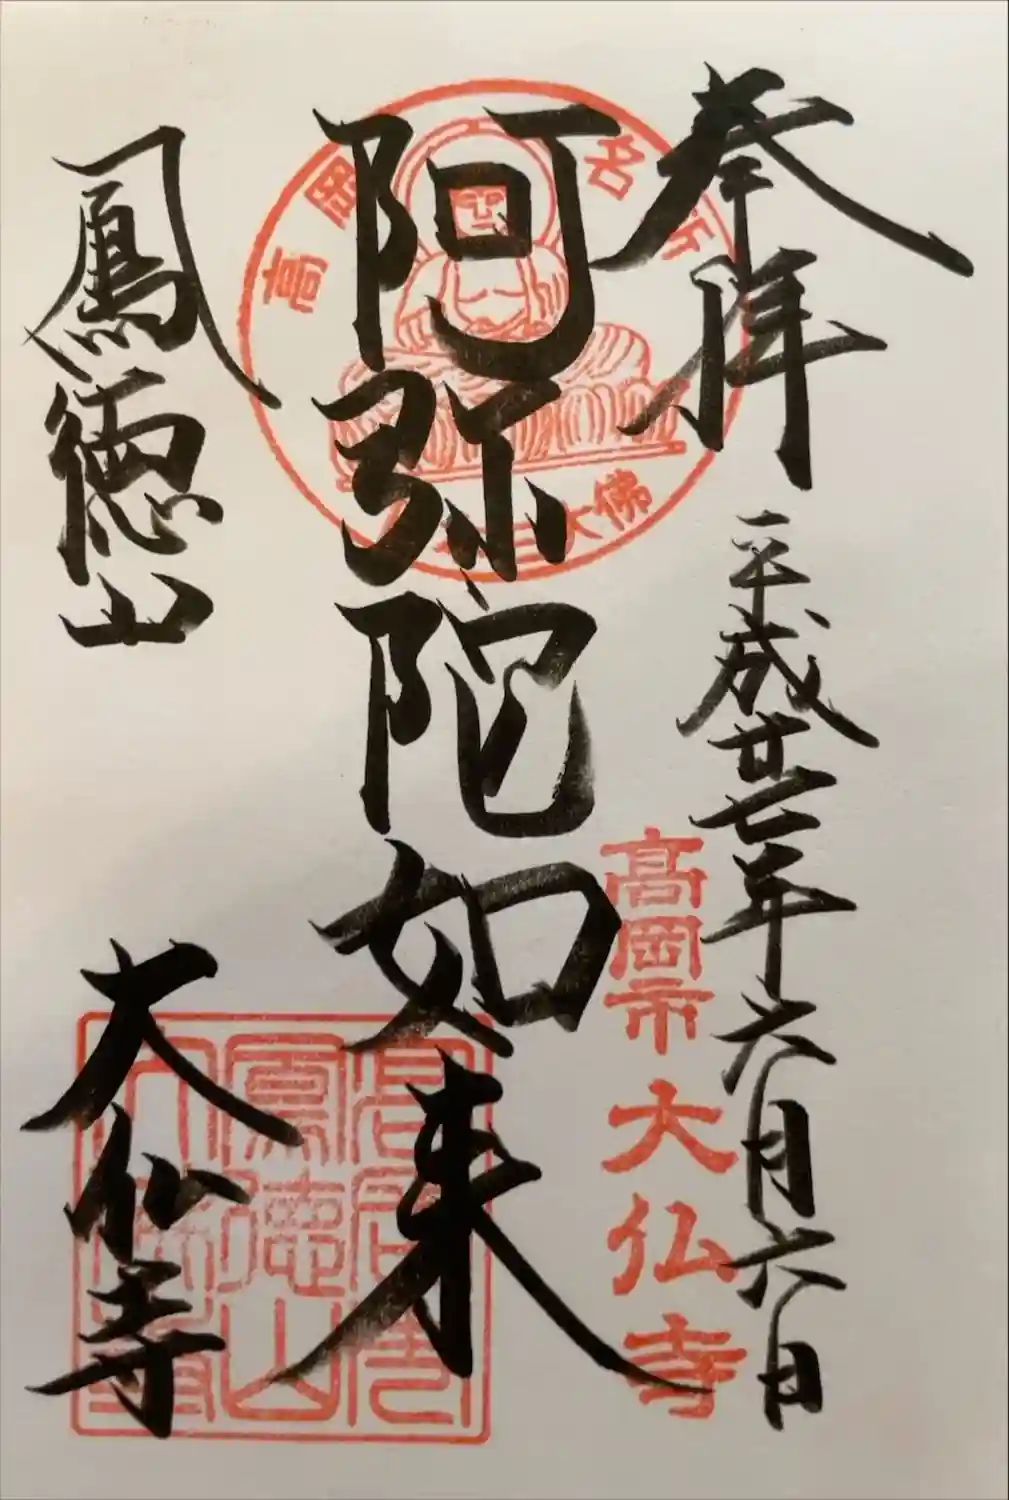 奉拝
平成廿七年六月六日
高岡市 大仏寺
阿弥陀如来
高岡名所
三大佛
鳳徳山
大仏寺
鳳徳山